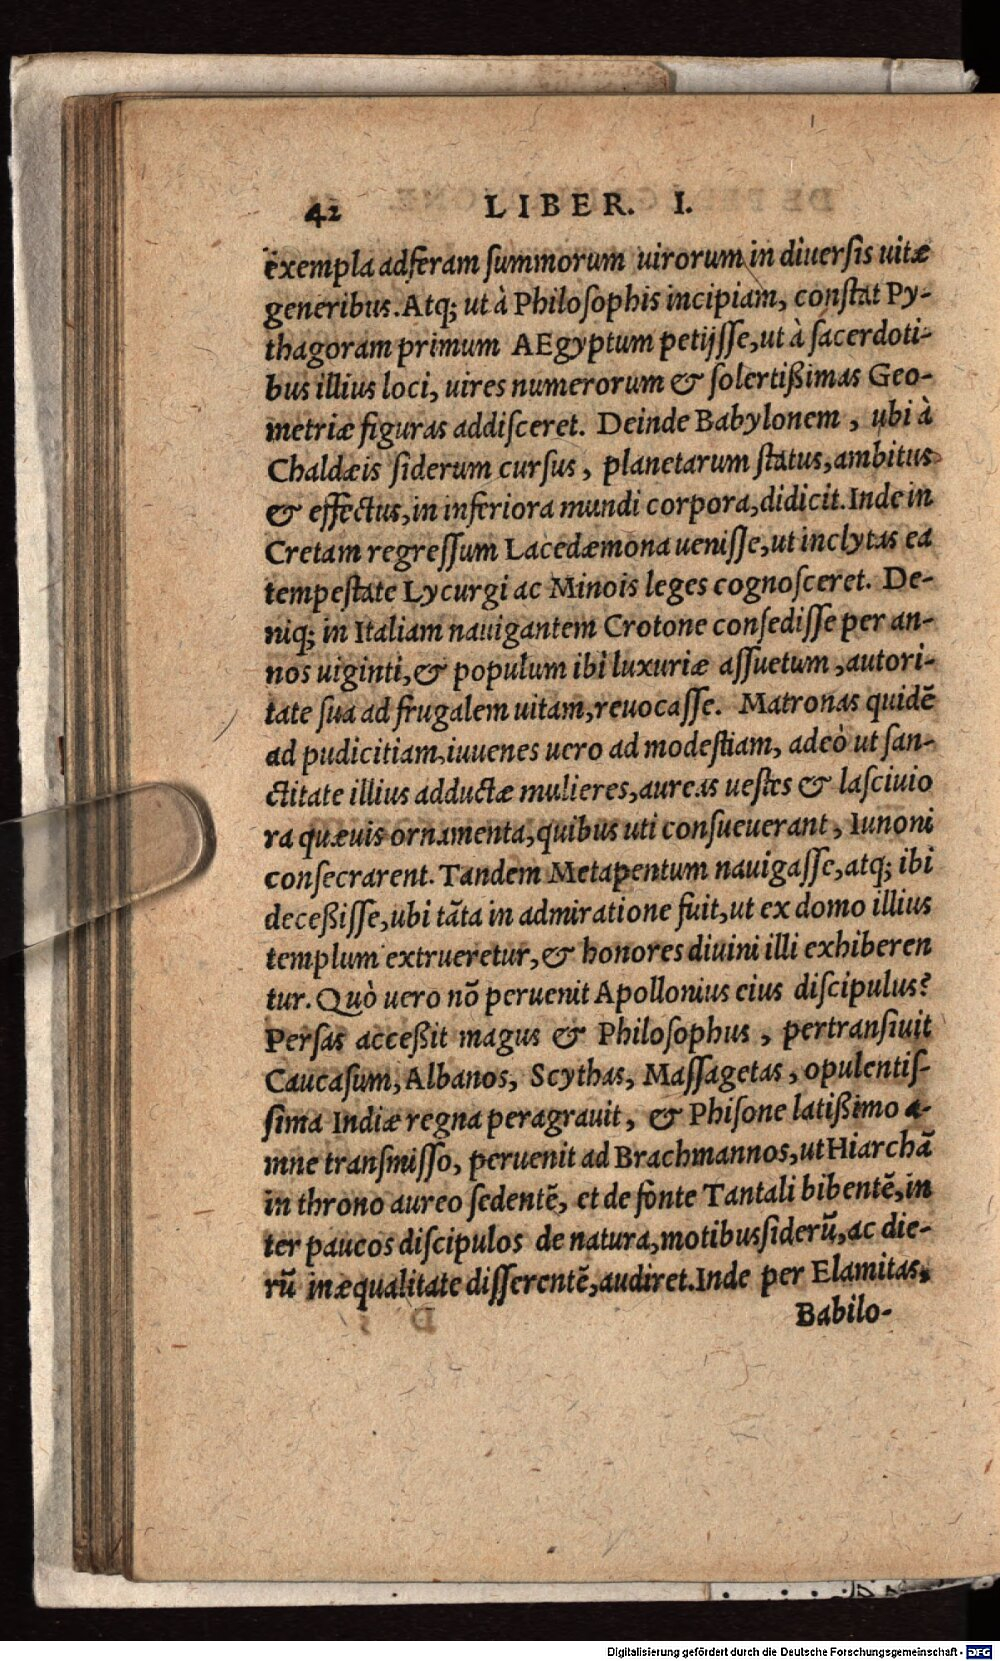 42 LIBER. I.
exempla adferam summorum uirorum in diuersis uitæ
generibus. Atq; ut à Philosophis incipiam, constat Py-
thagoram primum AEgyptum petijsse, ut à sacerdoti-
bus illius loci, uires numerorum & solertißimas Geo-
metriæ figuras addisceret. Deinde Babylonem, ubi à
Chaldæis siderum cursus, planetarum status, ambitus
& effectus, in inferiora mundi corpora, didicit. Inde in
Cretam regressum Lacedæmona uenisse, ut inclytas ea
tempestate Lycurgi ac Minois leges cognosceret. De-
niq; in Italiam nauigantem Crotone consedisse per an-
nos uiginti, & populum ibi luxuriæ assuetum, autori-
tate sua ad frugalem uitam, reuocasse. Matronas quidẽ
ad pudicitiam, iuuenes uero ad modestiam, adeò ut san-
ctitate illius adductæ mulieres, aureas uestes & lasciuio
ra quæuis ornamenta, quibus uti consueuerant, Iunoni
consecrarent. Tandem Metapentum nauigasse, atq; ibi
deceßisse, ubi tãta in admiratione fuit, ut ex domo illius
templum extrueretur, & honores diuini illi exhiberen
tur. Quò uero nõ peruenit Apollonius eius discipulus?
Persas acceßit magus & Philosophus, pertransiuit
Caucasum, Albanos, Scythas, Massagetas, opulentis-
sima Indiæ regna peragrauit, & Phisone latißimo a-
mne transmisso, peruenit ad Brachmannos, ut Hiarchã
in throno aureo sedentẽ, et de fonte Tantali bibentẽ, in
ter paucos discipulos de natura, motibus siderũ, ac die-
rũ inæqualitate disserentẽ, audiret. Inde per Elamitas,
Babilo-
Digitalisierung gefördert durch die Deutsche Forschungsgemeinschaft - DFG